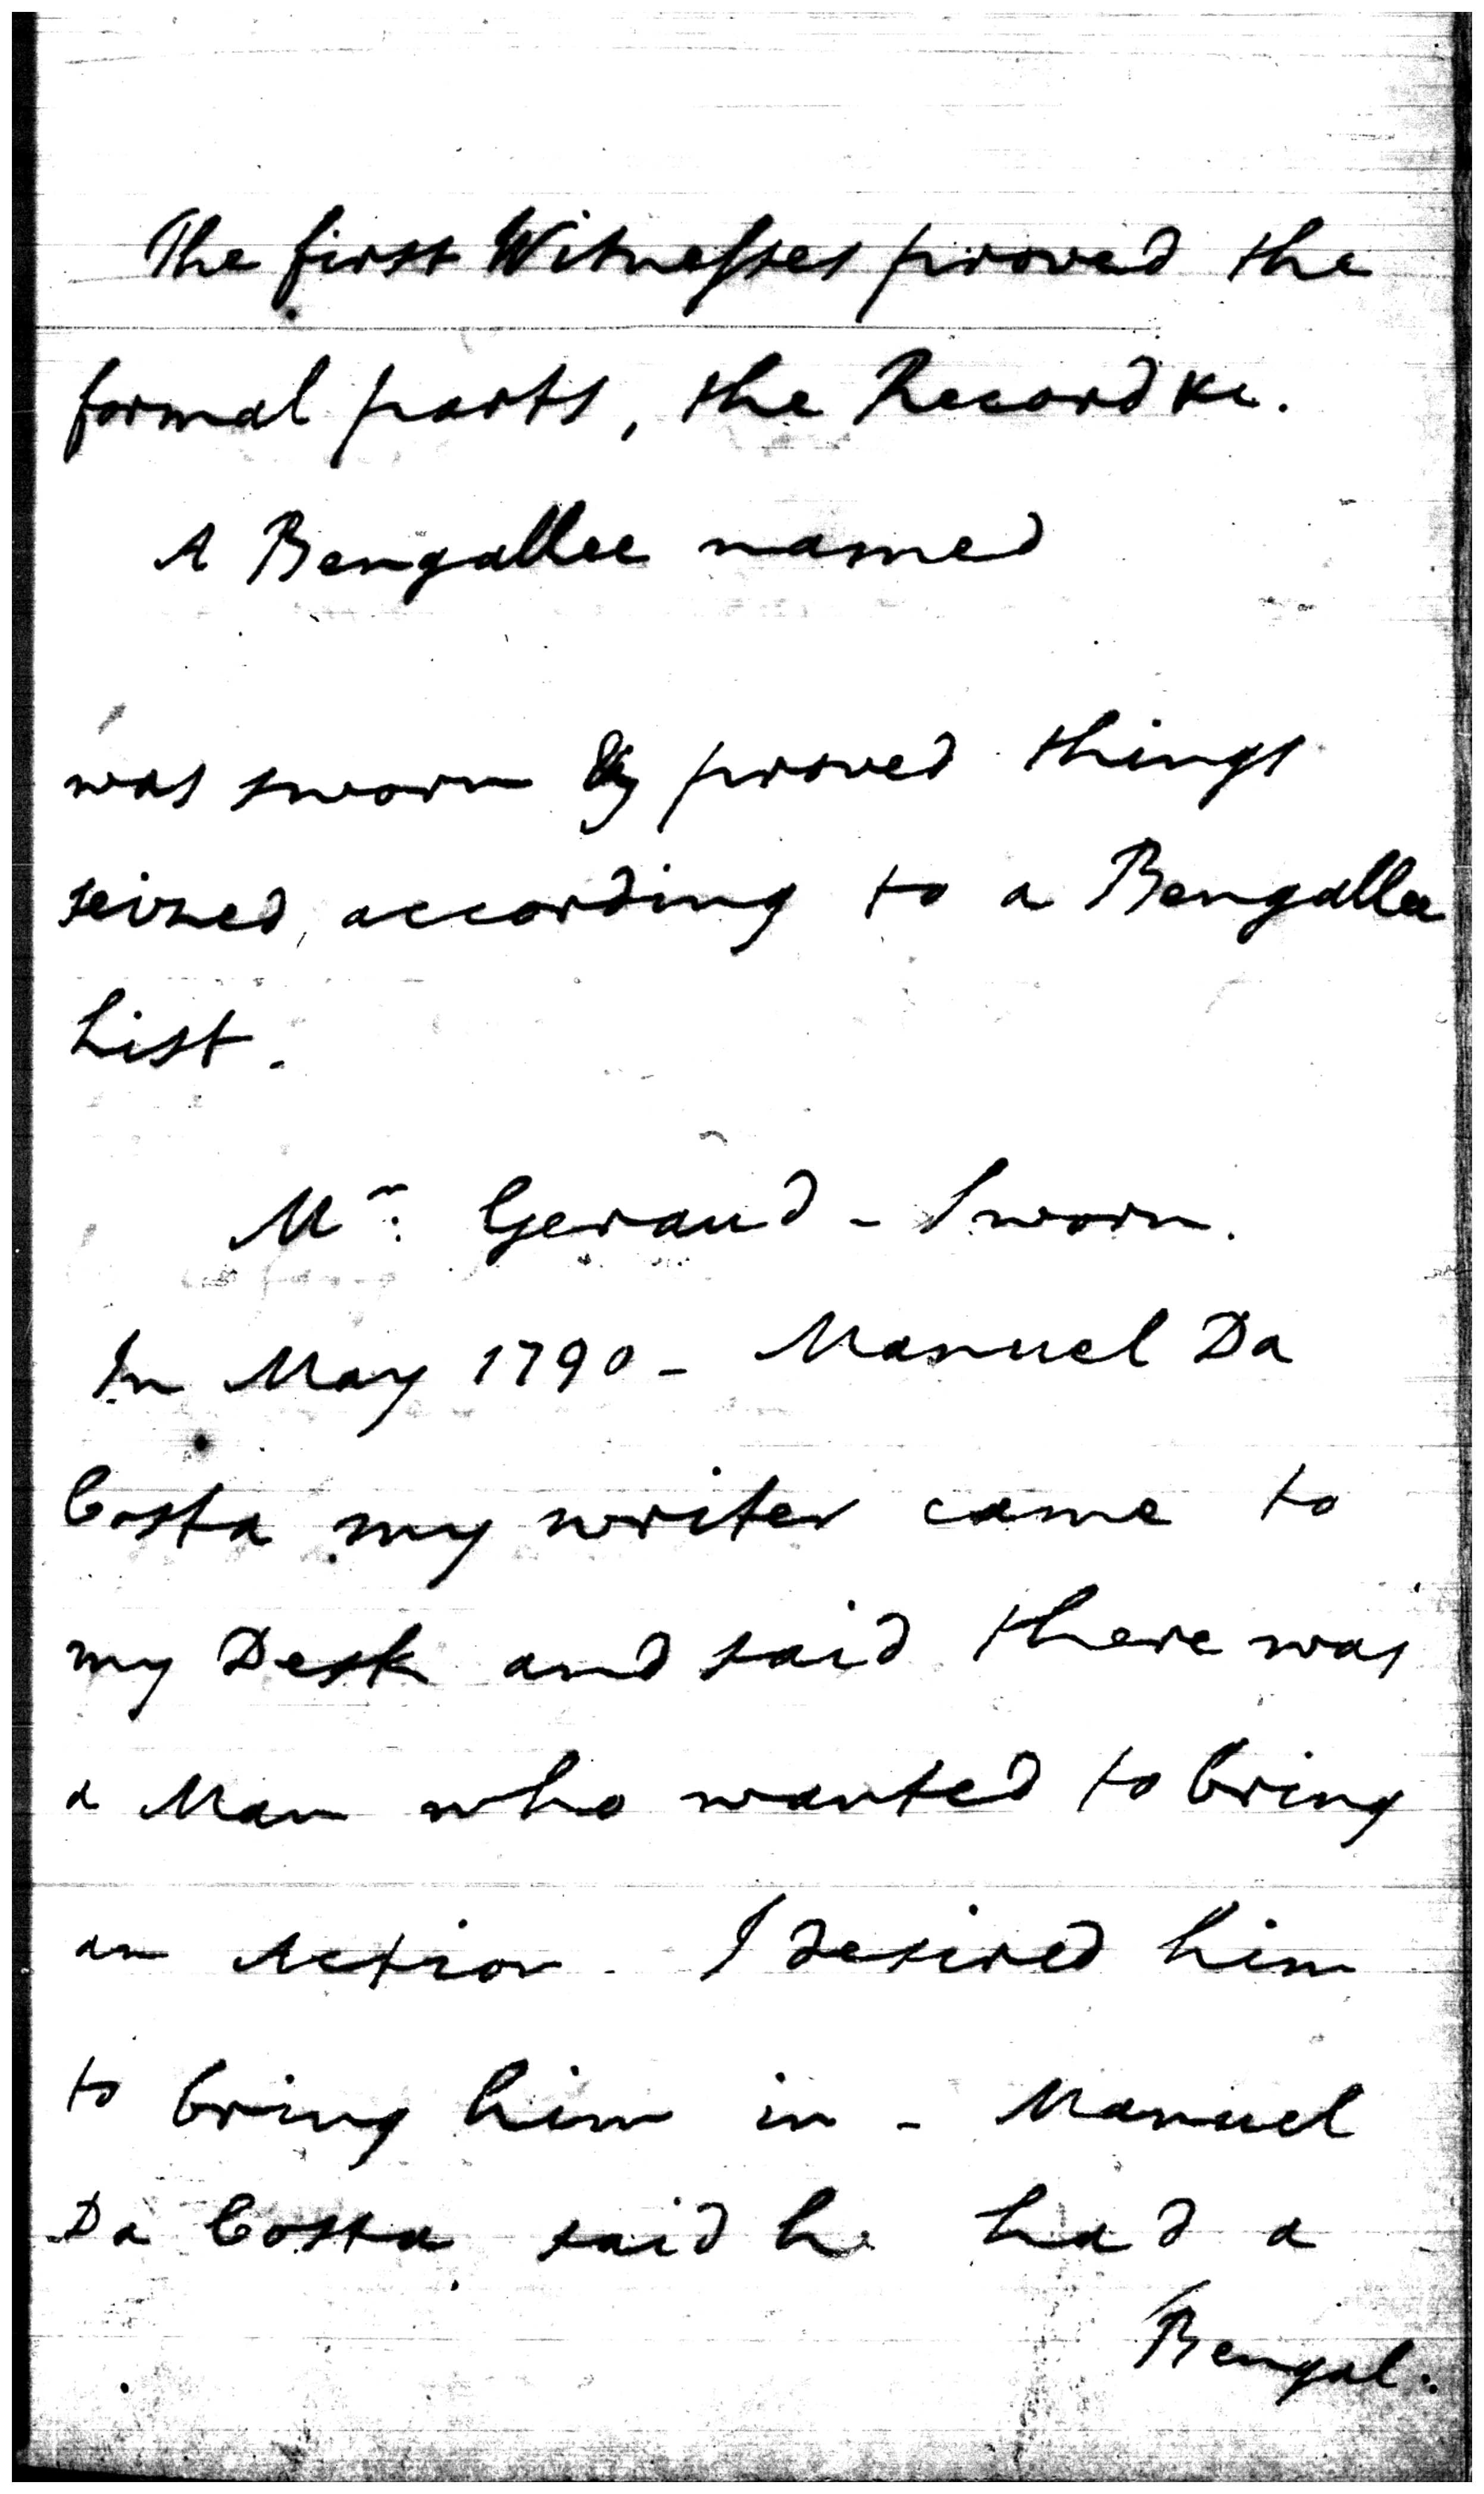 The first Witnesses proved the
formal parts, the Record &c.
A Bengallee named
was sworn & proved things
seized, according to a Bengallee
List.
Mr. Geraud - Sworn.
In May 1790 - Manuel Da
Costa my writer came to
my Desk and said there was
a Man who wanted to bring
an Action. I desired him
to bring him in - Manuel
Da Costa said he had a
Bengal.